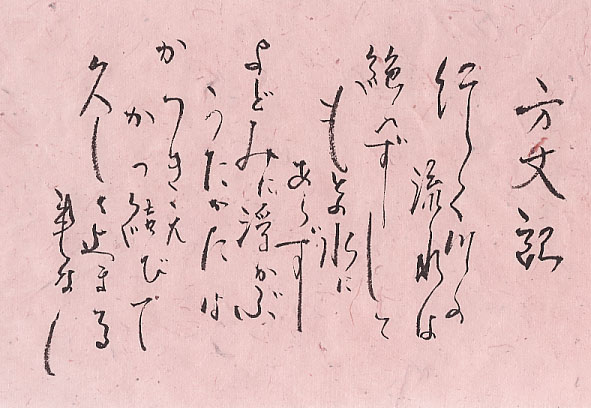 方丈記
行く川の
流れは
絶えずして
もとの水に
あらず
よどみに浮かぶ
うたかたは
かつきえ
かつ結びて
久しく止まる
なし